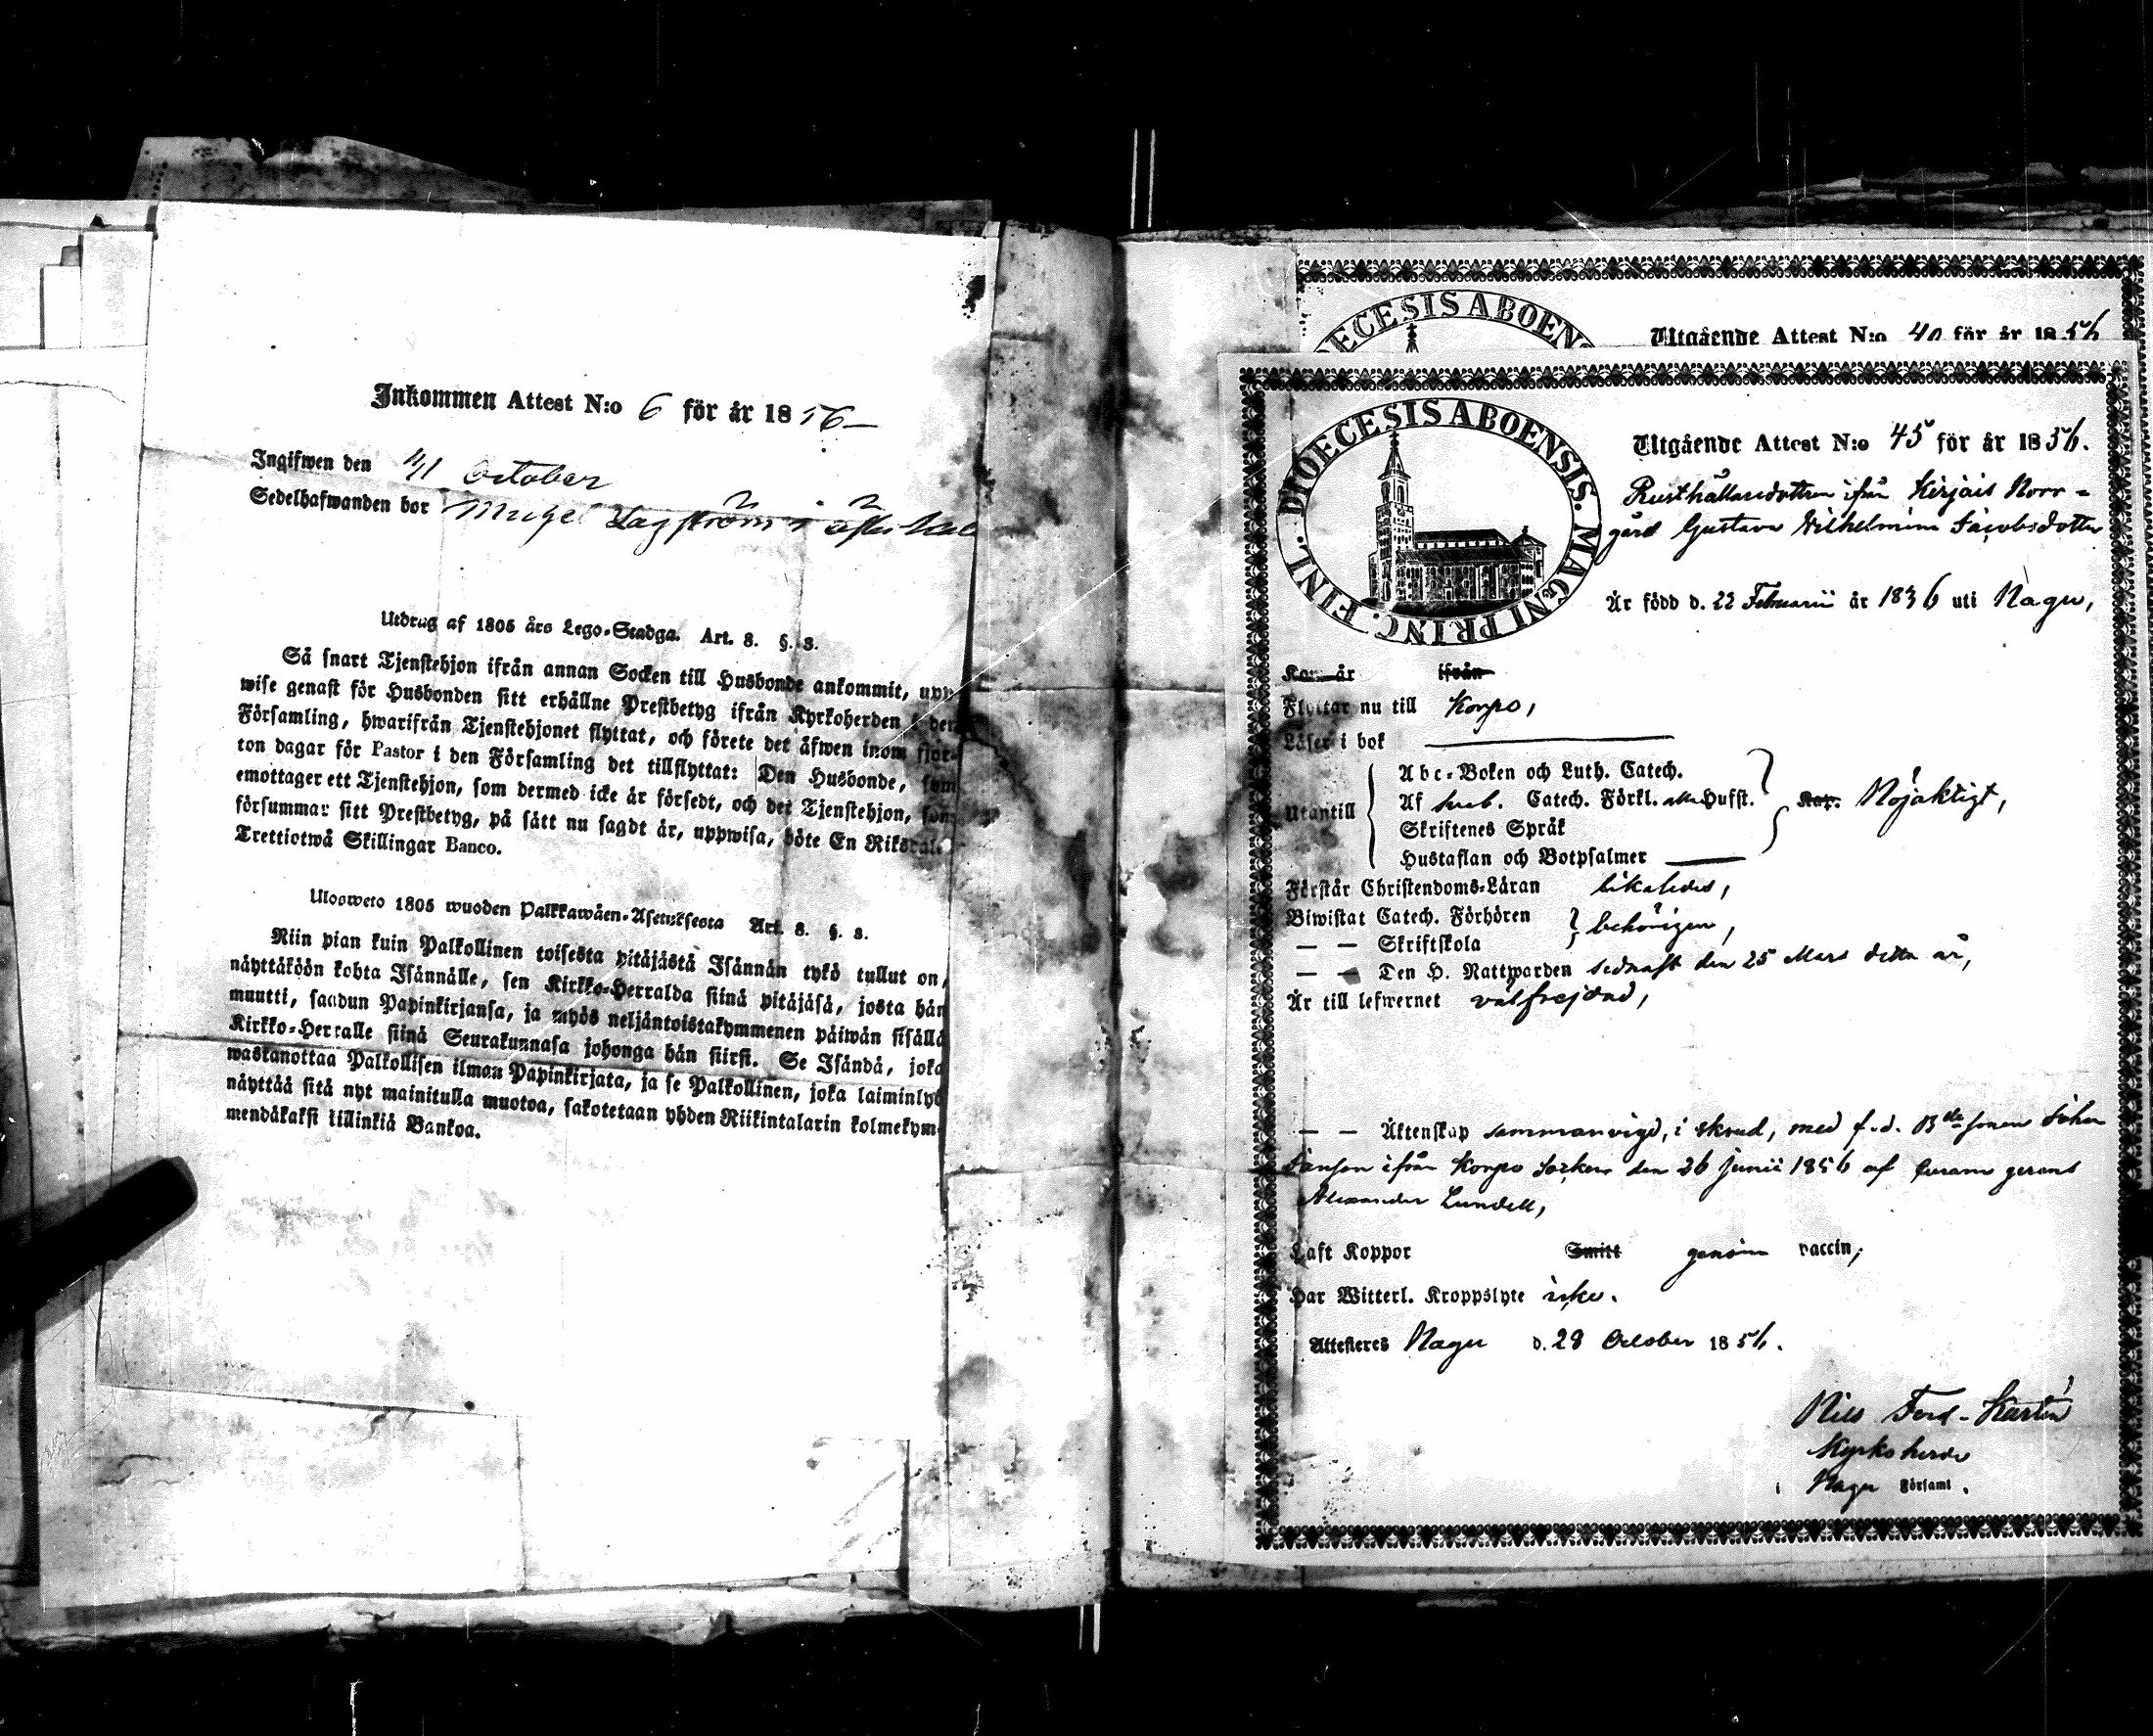 Inkommen Attest N:o 6 för år 1856
Ingifwen den 4/1 October
Sedelhafwanden bor Lagström i
Utdrag af 1805 års Lego-Stadga. Art. 8. §. 3.
Så snart Tjenstehjon ifrån annan Socken till Husbonde ankommit, upp
wise genast för Husbonden sitt erhållne Prestbetyg ifrån Kyrkoherden i den
Församling, hwarifrån Tjenstehjonet flyttat, och förete det äfwen inom fjor-
ton dagar för Pastor i den Församling det tillflyttat: Den Husbonde, som
emottager ett Tjenstehjon, som dermed icke är försedt, och det Tjenstehjon, som
försummar sitt Prestbetyg, på sätt nu sagdt är, uppwisa, böte En Riksdale
Trettiotwå Skillingar Banco.
Ulosweto 1805 wuoden Palkkawäen-Asetuksesta Art. 8. §. 3.
Niin pian kuin Palkollinen toisesta pitäjästä Isännän tykö tullut on,
näyttäköön kohta Isännälle, sen Kirkko-Herralda siinä pitäjäsä, josta hän
muutti, saadun Papinkirjansa, ja myös neljäntoistakymmenen päiwän sisällä
Kirkko-Herralle siinä Seurakunnasa johonga hän siirsi. Se Isändä, joka
wastanottaa Palkollisen ilman Papinkirjata, ja se Palkollinen, joka laiminlyö
näyttää sitä nyt mainitulla muotoa, sakotetaan yhden Riikintalarin kolmekym-
mendäkaksi killinkiä Bankoa.
DIOECESIS ABOEN
Utgående Attest N:o 40 för år 1856
DIOECESIS ABOENSIS. MAGNI PRINC. FINL.
Utgående Attest N:o 45 för år 1856.
Rusthållaredottren ifrån Kirjais Norr-
gård Gustava Wilhelmina Jacobsdotter
Är född d. 22 Februarii år 1836 uti Nagu,
Kom år ifrån
Flyttar nu till Korpo,
Läser i bok
Utantill
Abc-Boken och Luth. Catech.
Af Sveb. Catech. Förkl. Hufst.
Skriftenes Språk
Hustaflan och Botpsalmer
Nöjaktigt,
Förstår Christendoms-Läran likaledes,
Biwistat Catech. Förhören
— — Skriftskola
behörigen,
— — Den H. Nattwarden sednast den 25 Mars detta år,
Är till lefwernet välfrejdad,
— — Äktenskap sammanvigd, i skrud, med f.d. Bdesonen Johan
Janson ifrån Korpo Socken den 26 Junii 1856 af curam gerens
Alexander Lundell,
Haft Koppor Smitt genom vaccin,
Har Witterl. Kroppslyte icke.
Attesteres Nagu d. 28 October 1856.
Nils Ferd.
Kyrkoherde
i Nagu Församl.